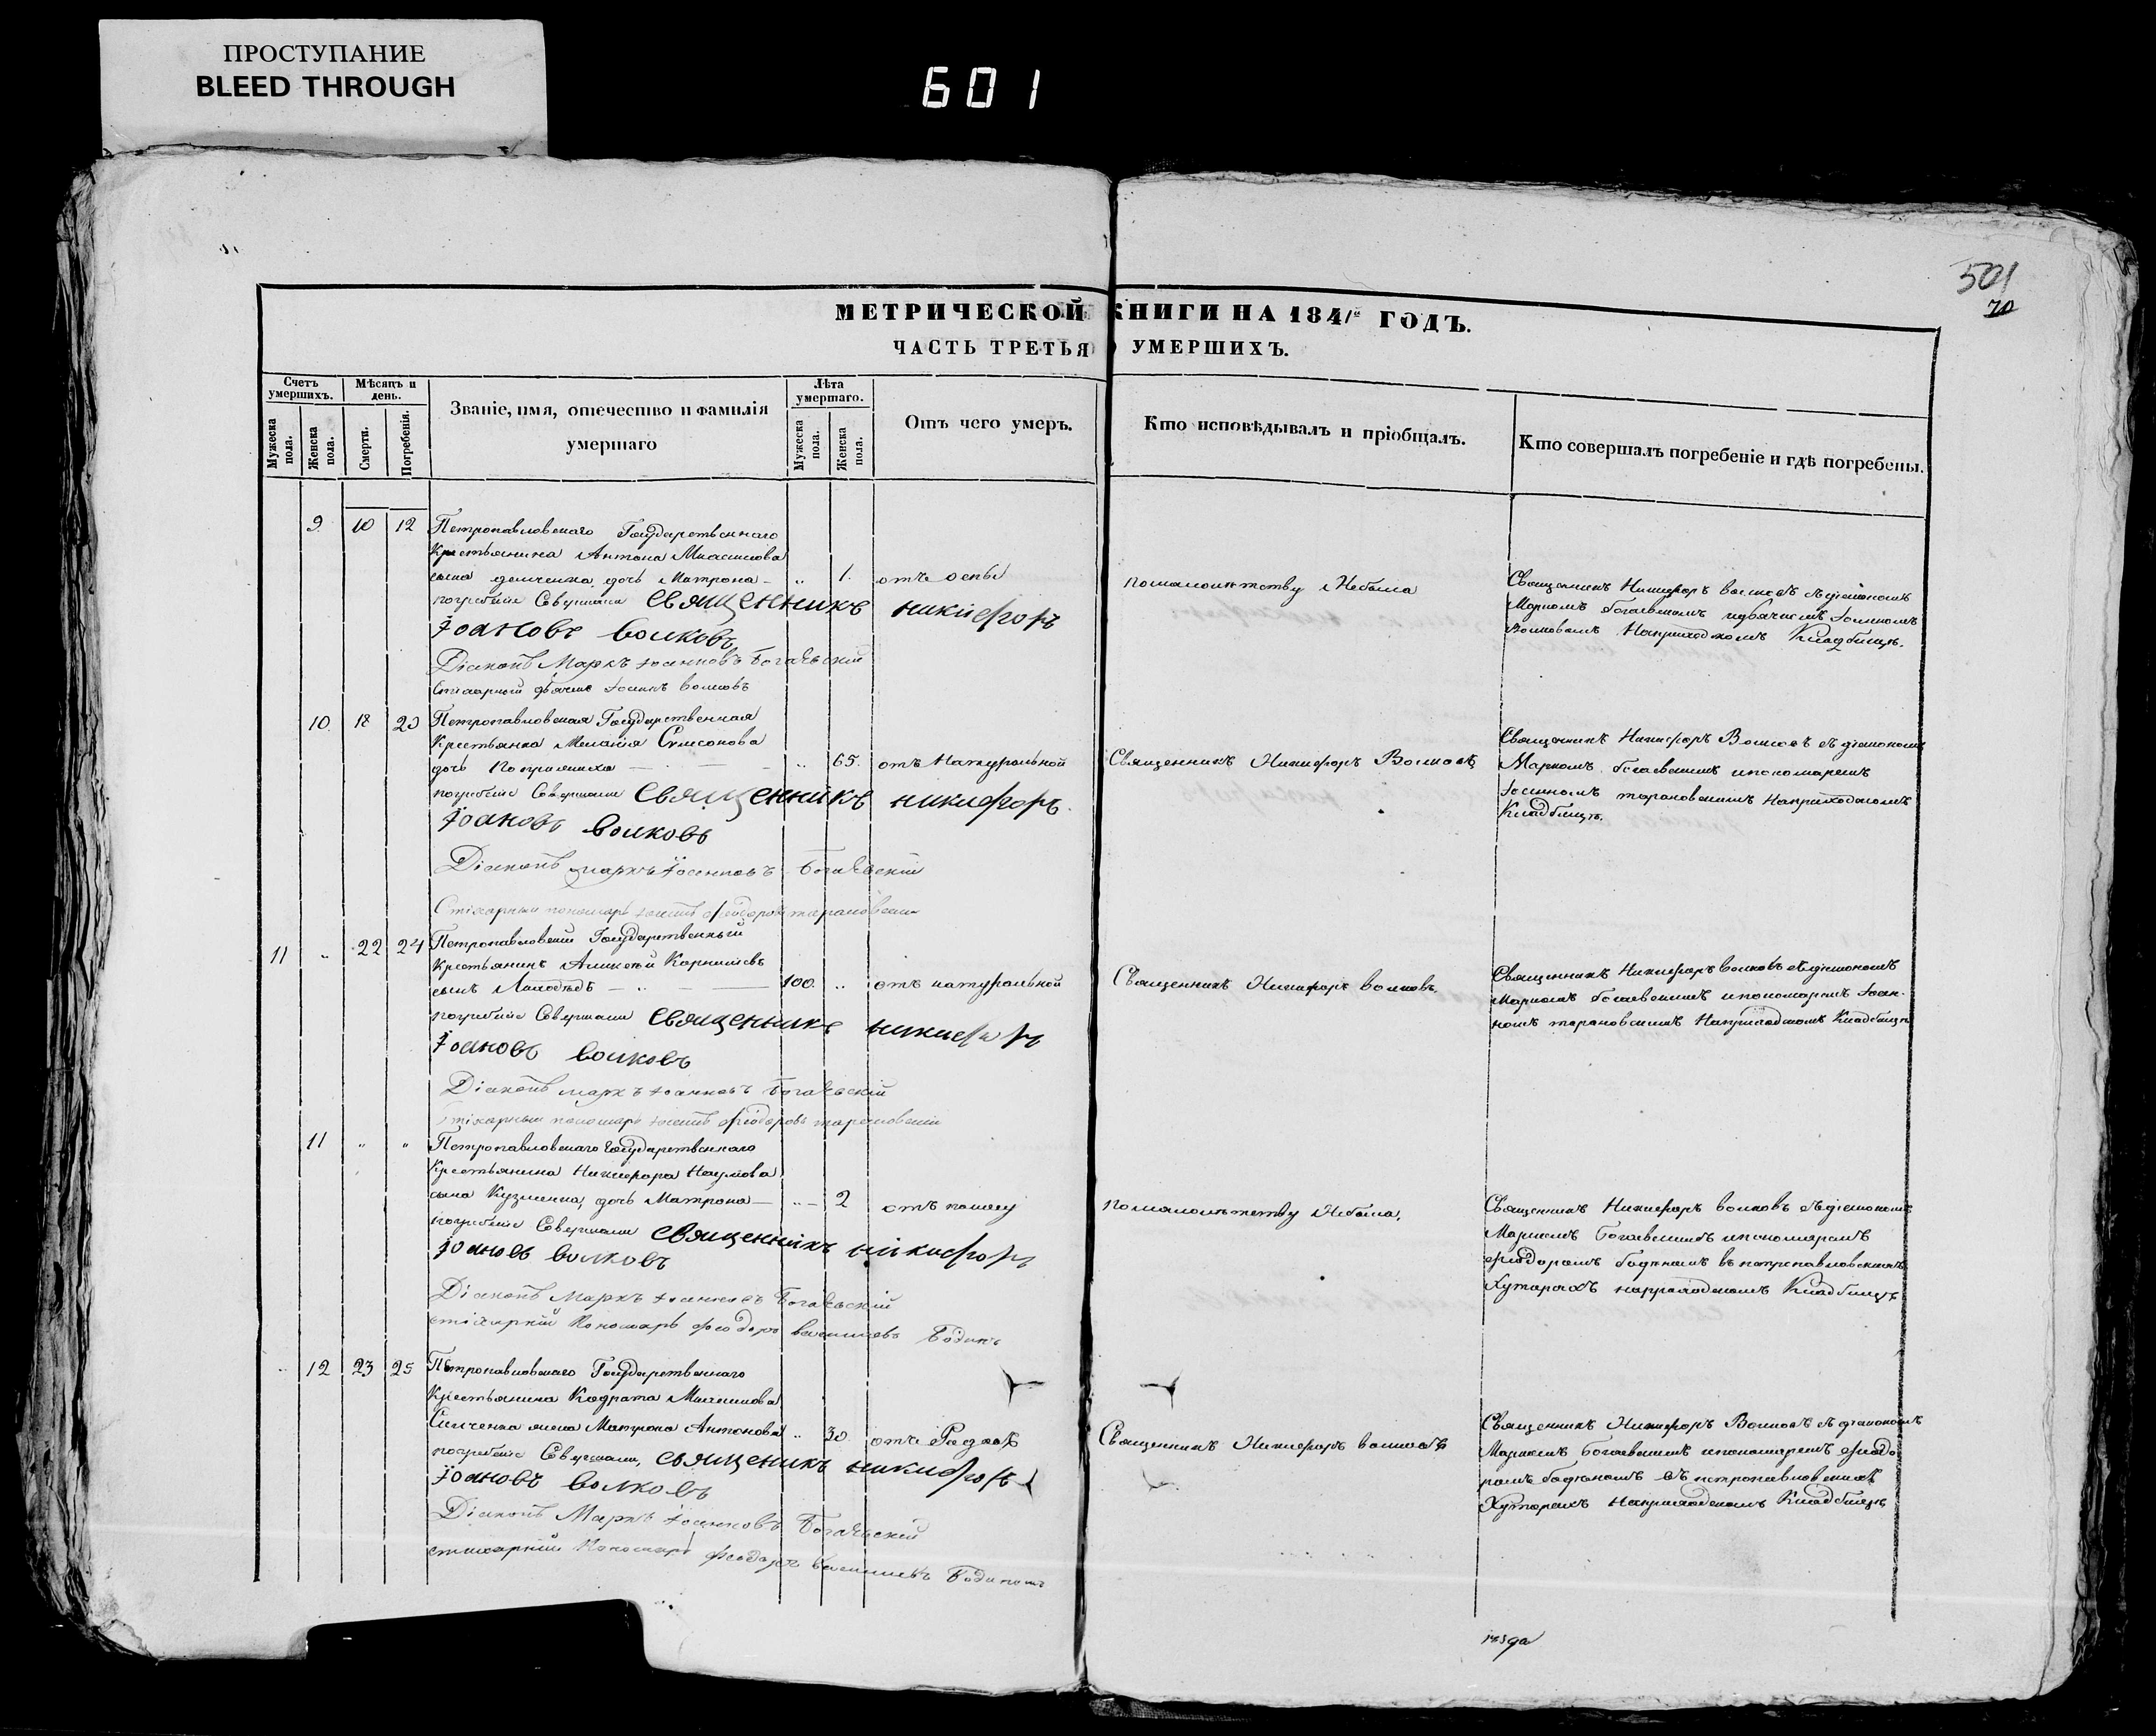 ПРОСТУПАНИЕ
BLEED THROUGH
601
501
70
МЕТРИЧЕСКОЙ КНИГИ НА 1841й ГОДЪ.
ЧАСТЬ ТРЕТЬЯ О УМЕРШИХЪ.
Счетъ умершихъ.
Мужеска пола.
Женска пола.
Мѣсяцъ и день.
Смерти.
Погребенія.
Званіе, имя, отечество и фамилія
умершаго
Лѣта умершаго.
Мужеска пола.
Женска пола.
Отъ чего умеръ.
Кто исповѣдывалъ и пріобщалъ.
Кто совершалъ погребеніе и гдѣ погребены.
9 10 12 Петропавловскаго Государственнаго
Крестьянина Антона
сына дочь Матрона „ 1. отъ оспы
погребеніе Совершали священникъ никифоръ
Іоановъ волковъ
Діаконъ Маркъ Іоанновъ Богаевскій
Стихарный дьячекъ Іоаннъ волковъ
по малолѣтству Небыла
Священникъ Никифоръ волковъ съ діакономъ
Маркомъ Богаевскимъ и дьячкомъ Іоанномъ
Волковымъ На приходскомъ Кладбищѣ.
10. 18 20 Петропавловская Государственная
Крестьянка Меланія
дочь „ 65. отъ Натуральной
погребеніе Совершали священникъ никифоръ
Іоановъ волковъ
Діаконъ маркъ Іоанновъ Богаевскій
Стихарный пономарь Феодоровъ тарановскій
Священникъ Никифоръ Волковъ
Священникъ Никифоръ Волковъ съ діакономъ
Маркомъ Богаевскимъ и пономаремъ
Іоанномъ тарановскимъ На приходскомъ
Кладбищѣ.
11 „ 22 24 Петропавловскій Государственный
Крестьянинъ Алексѣй Корнилевъ
сынъ 100. „ отъ натуральной
погребеніе Совершали священникъ никифоръ
Іоановъ волковъ
Діаконъ маркъ Іоанновъ Богаевскій
Стихарный пономарь Феодоровъ тарановскій
Священникъ Никифоръ волковъ.
Священникъ Никифоръ волковъ съ діакономъ
Маркомъ Богаевскимъ и пономаремъ Іоан-
номъ тарановскимъ На приходскомъ Кладбищѣ
11 „ „ Петропавловскаго Государственнаго
Крестьянина Никифора Наумова
сына Кузменка, дочь Матрона „ 2 отъ
погребеніе Совершали священникъ никифоръ
Іоановъ волковъ
Діаконъ Маркъ Іоанновъ Богаевскій
стихарній Пономарь Феодоръ
по малолѣтству Небыла,
Священникъ Никифоръ волковъ съ діакономъ
Маркомъ Богаевскимъ и пономаремъ
Феодоромъ въ петропавловскихъ
Хуторахъ на приходскомъ Кладбищѣ
12 23 25 Петропавловскаго Государственнаго
Крестьянина Кодрата
жена Матрона Антонова „ 30. отъ Родовъ
погребеніе Совершали, священикъ никифоръ
Іоановъ волковъ
Діаконъ Маркъ Іоанновъ Богаевскій
стихарній Пономарь Феодоръ
Священникъ Никифоръ волковъ
Священникъ Никифоръ Волковъ съ діакономъ
Маркомъ Богаевскимъ и пономаремъ Феодо
ромъ въ петропавловскихъ
Хуторахъ На приходскомъ Кладбищѣ